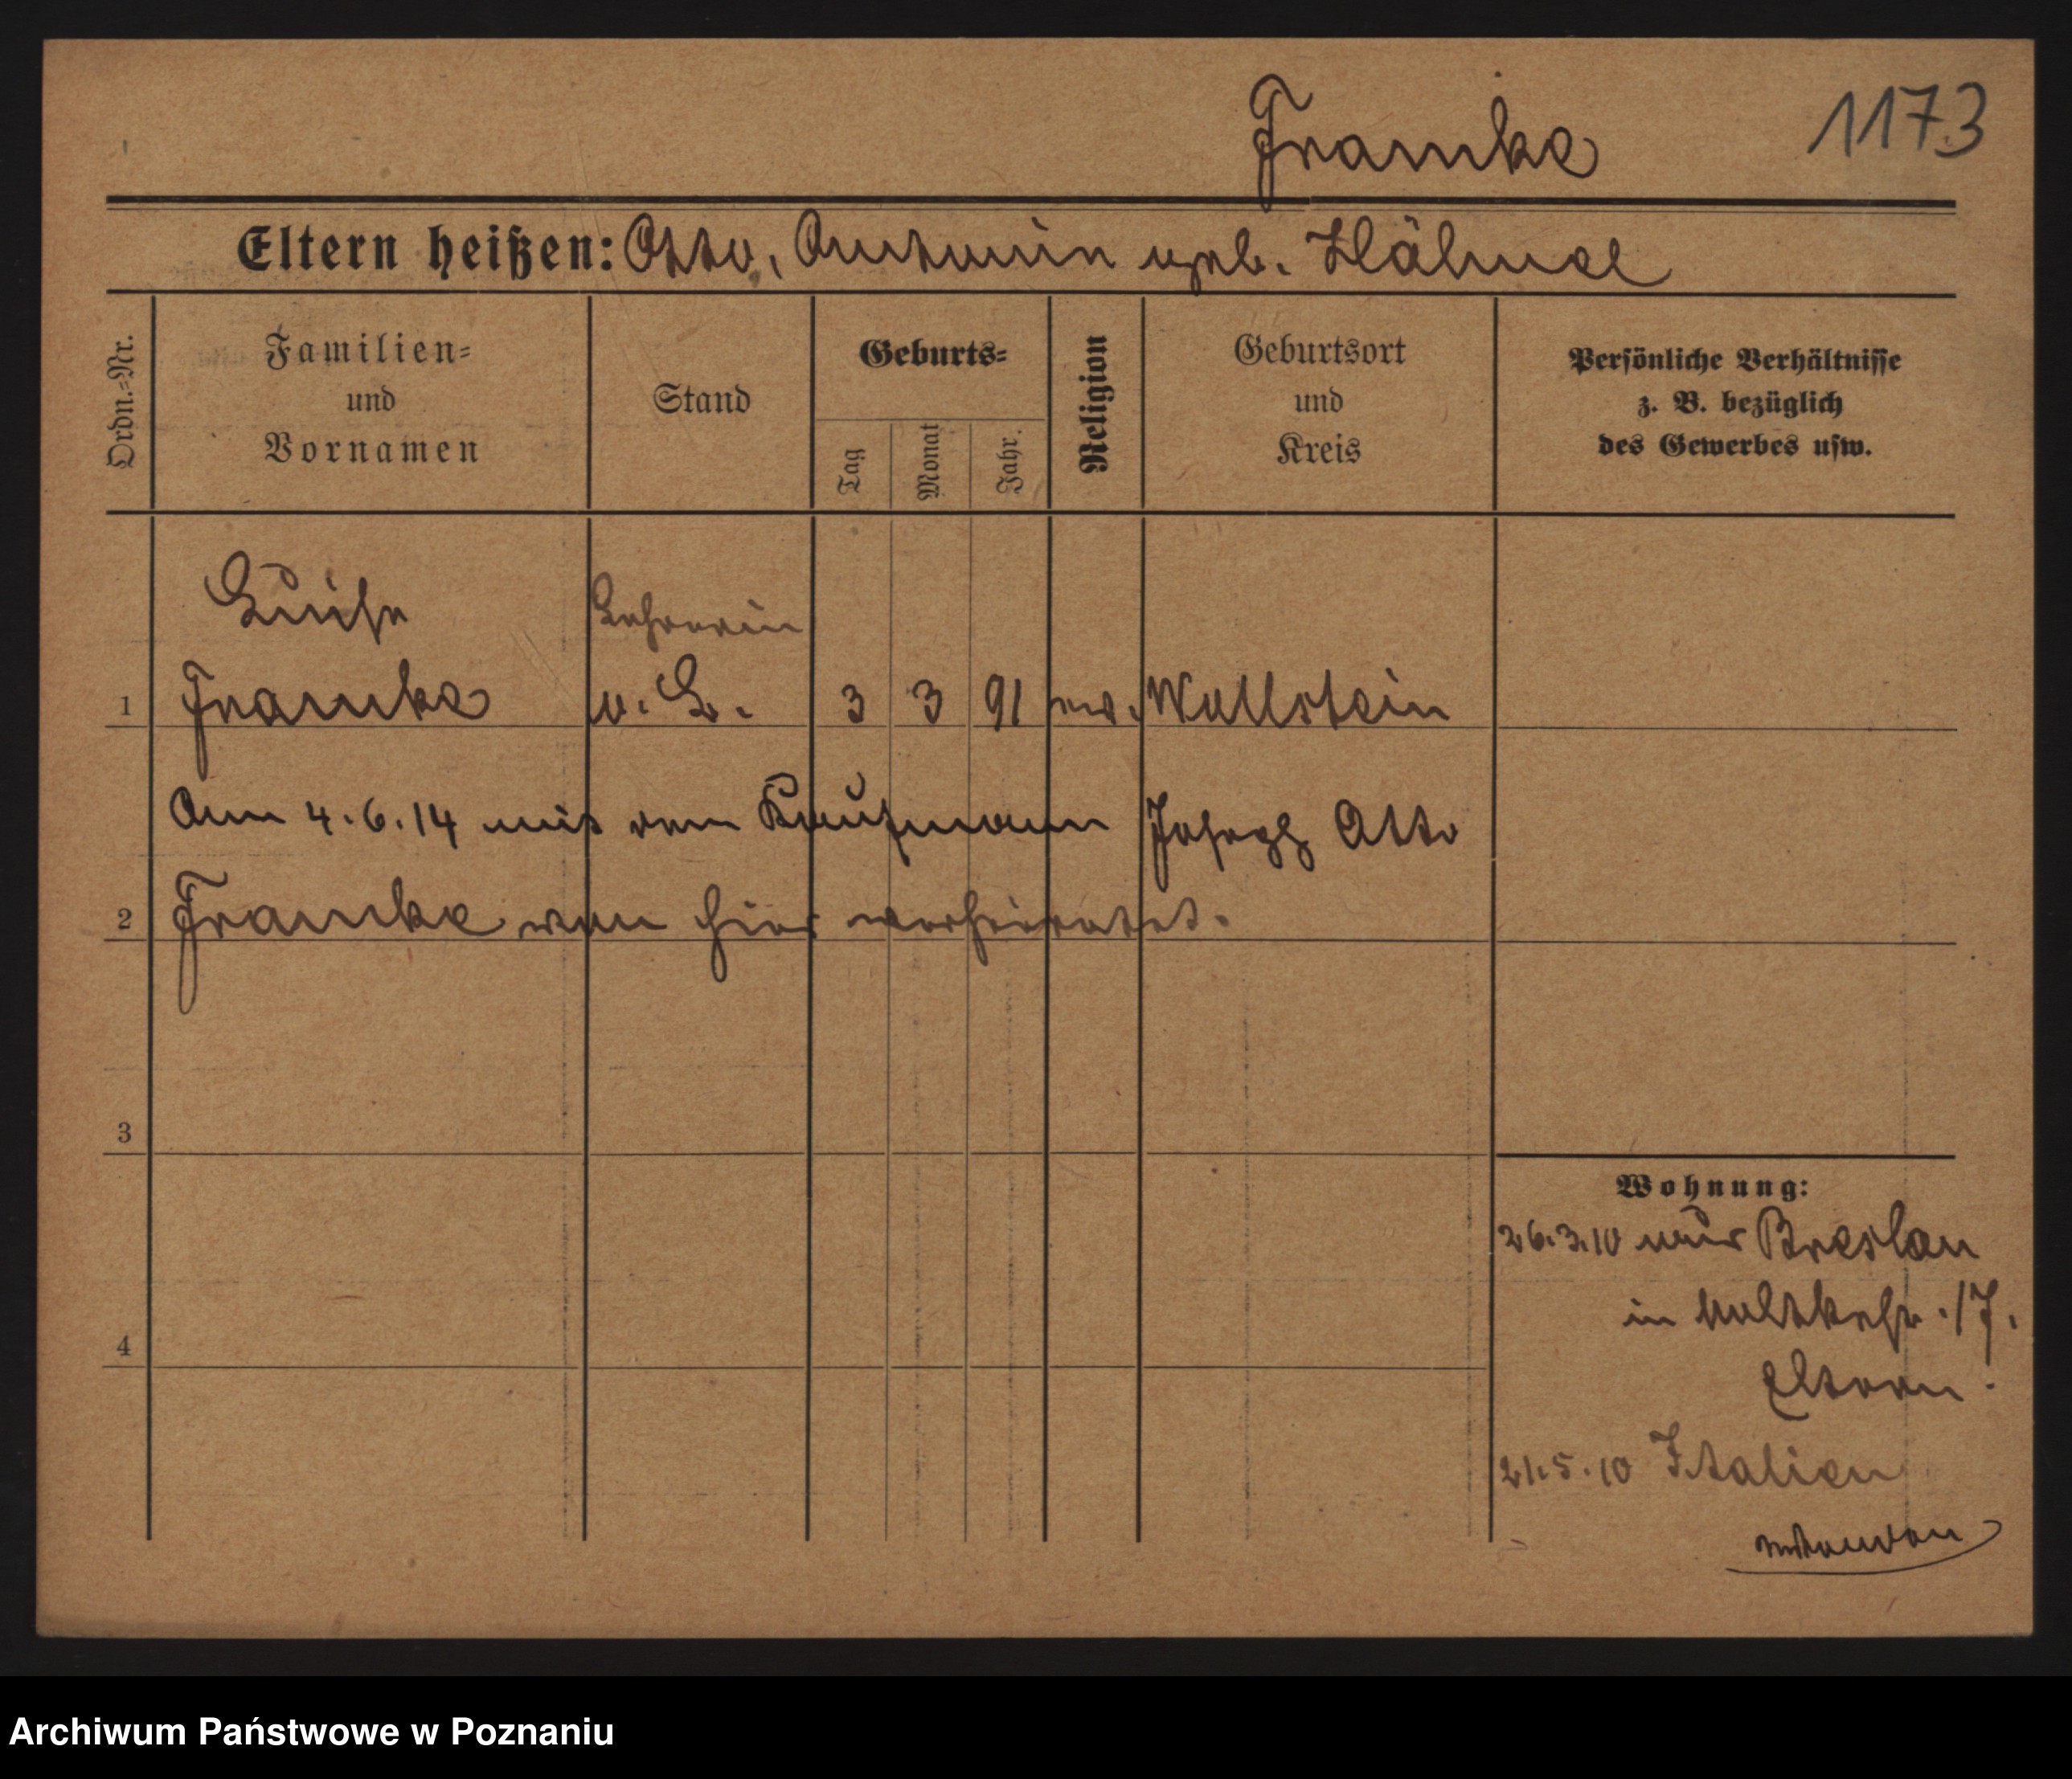 Franke
1173
Eltern heißen: Otto, Antonie geb. Hähnel
Ordn.-Nr.
Familien-
und
Vornamen
Stand
Geburts-
Tag
Monat
Jahr.
Religion
Geburtsort
und
Kreis
Persönliche Verhältnisse
z. B. bezüglich
des Gewerbes usw.
Luise
Lehrerin
1 Franke
o. B. 3 3 91 ev. Wollstein
Am 4.6.14 mit dem Kaufmann Joseph Otto
2 Franke von hier verheiratet.
3
4
Wohnung:
26.3.10 aus Breslau
in Moltkestr. 17.
Eltern.
21.5.10 Italien
Archiwum Państwowe w Poznaniu